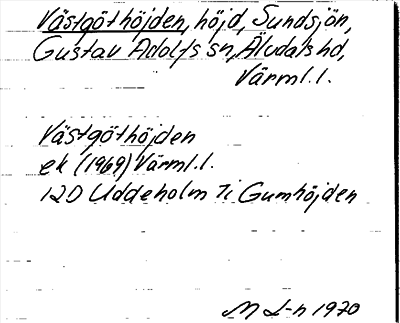 Västgöthöjden, höjd, Sundsjön,
Gustav Adolfs sn, Älvdals hd,
Värml. l.
Västgöthöjden
ek (1969) Värml. l.
12D Uddeholm 7i Gumhöjden
M L-n 1970